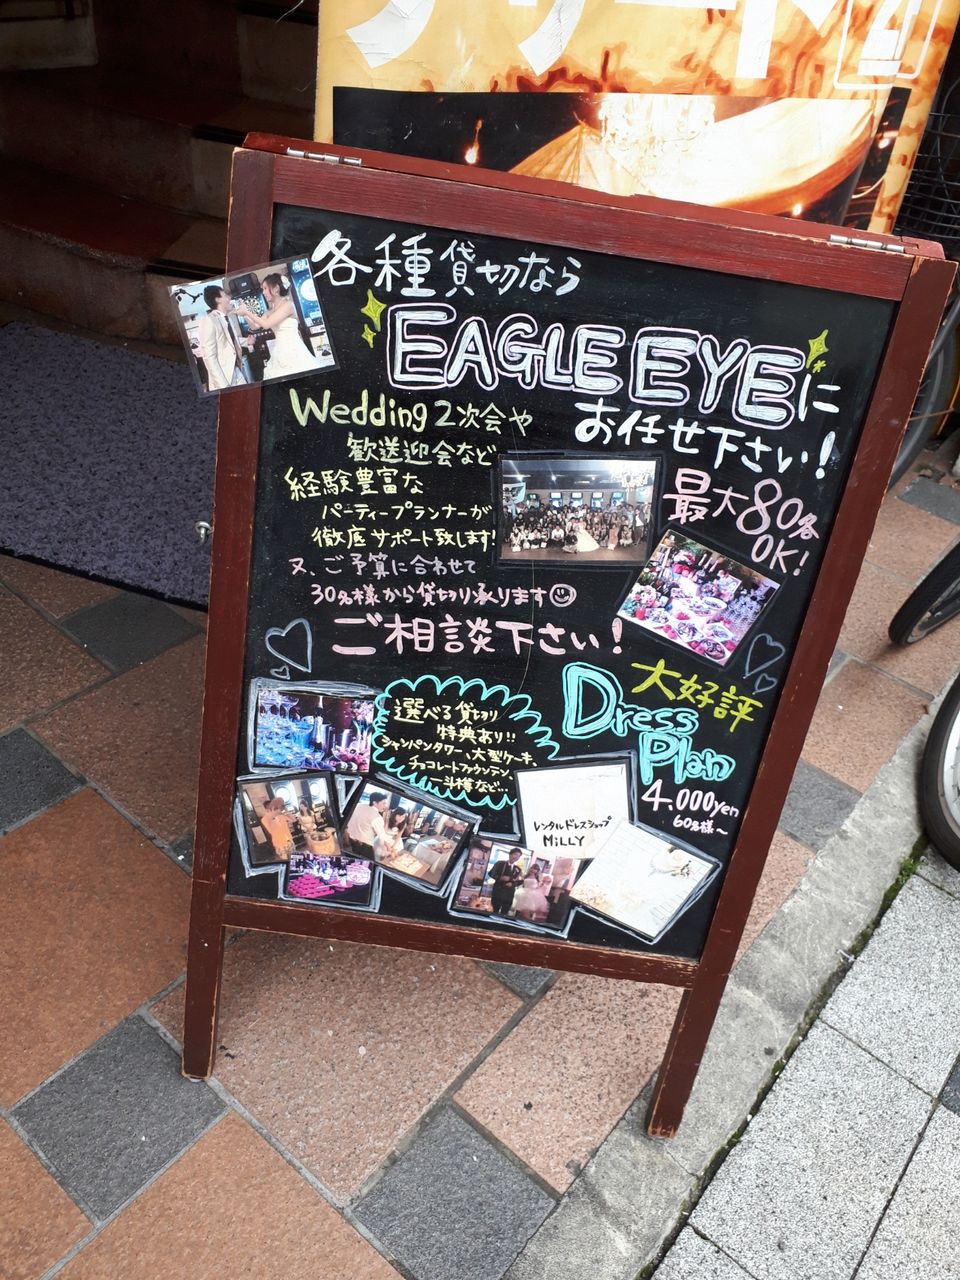 各種貸切なら
EAGLE EYEに
お任せ下さい!
Wedding 2次会や
歓送迎会など
経験豊富な
パーティープランナーが
徹底サポート致します!
最大80名
OK!
又、ご予算に合わせて
30名様から貸切り承ります
ご相談下さい!
選べる貸切り
特典あり!!
シャンパンタワー、大型ケーキ、
チョコレートファウンテン、
一斗樽など…
大好評
Dress
Plan
4.000yen
60名様〜
レンタルドレスショップ
MiLLY